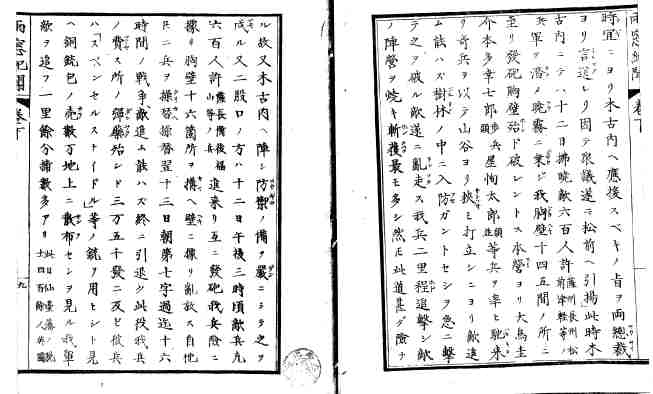 時宜ニヨリ木古内ヘ應援スベキノ旨ヲ両總裁
ヨリ言送レリ因テ衆議遂ニ松前ヘ引揚此時木
古内ニテハ十二日拂暁敵六百人許
兵軍ヲ潜メ暁霧ニ乗ジ我胸壁十四五間ノ所ニ
至リ發砲胸壁殆ド破レントス本營ヨリ大鳥圭
介本多幸七郎星恂太郎等兵ヲ率ヒ馳来
リ奇兵ヲ以テ山谷ヨリ挾ミ打立シニヨリ敵遂
ニ能ハズ樹林ノ中ニ入防ガントセシヲ急ニ撃
テ之ヲ破ル敵遂ニ亂走ス我兵二里程追撃シ敵
ノ陣營ヲ焼キ斬獲最モ多シ然モ此道甚ダ險ヲ
ル故又木古内ヘ陣シ防禦ノ備ヲ嚴ニシテ之ヲ
成ル又二股口ノ方ハ十二日午後三時頃敵兵凡
六百人許進来リ互ニ發砲我兵險ニ
據リ胸壁十六箇所ヲ構ヘ壁ニ據リ亂放ス自他
トモニ兵ヲ操替操替翌十三日朝第七字過迄十六
時間ノ戦争敵進ム能ハズ終ニ引退ク此役我兵
ノ費ス所ノ彈藥殆ンド三万五千發ニ及ビ彼兵
ハ「スペンセルストイドル」等ノ銃ヲ用ヒシト見
ヘ銅銃包ノ売数万地上ニ散布セシヲ見ル我軍
敵ヲ追フ一里餘分捕數多アリ
雨窓紀聞 巻下
九